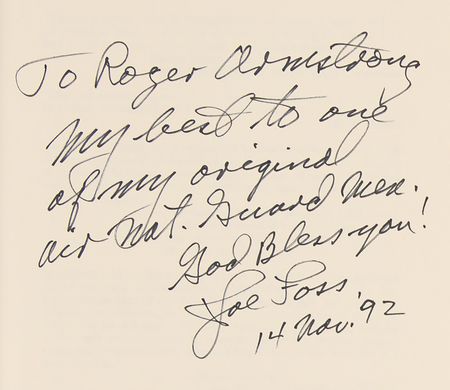 To Roger Armstrong
my best to one
of my original
air Nat. Guard Men.
God Bless you!
Joe Foss
14 Nov. '92